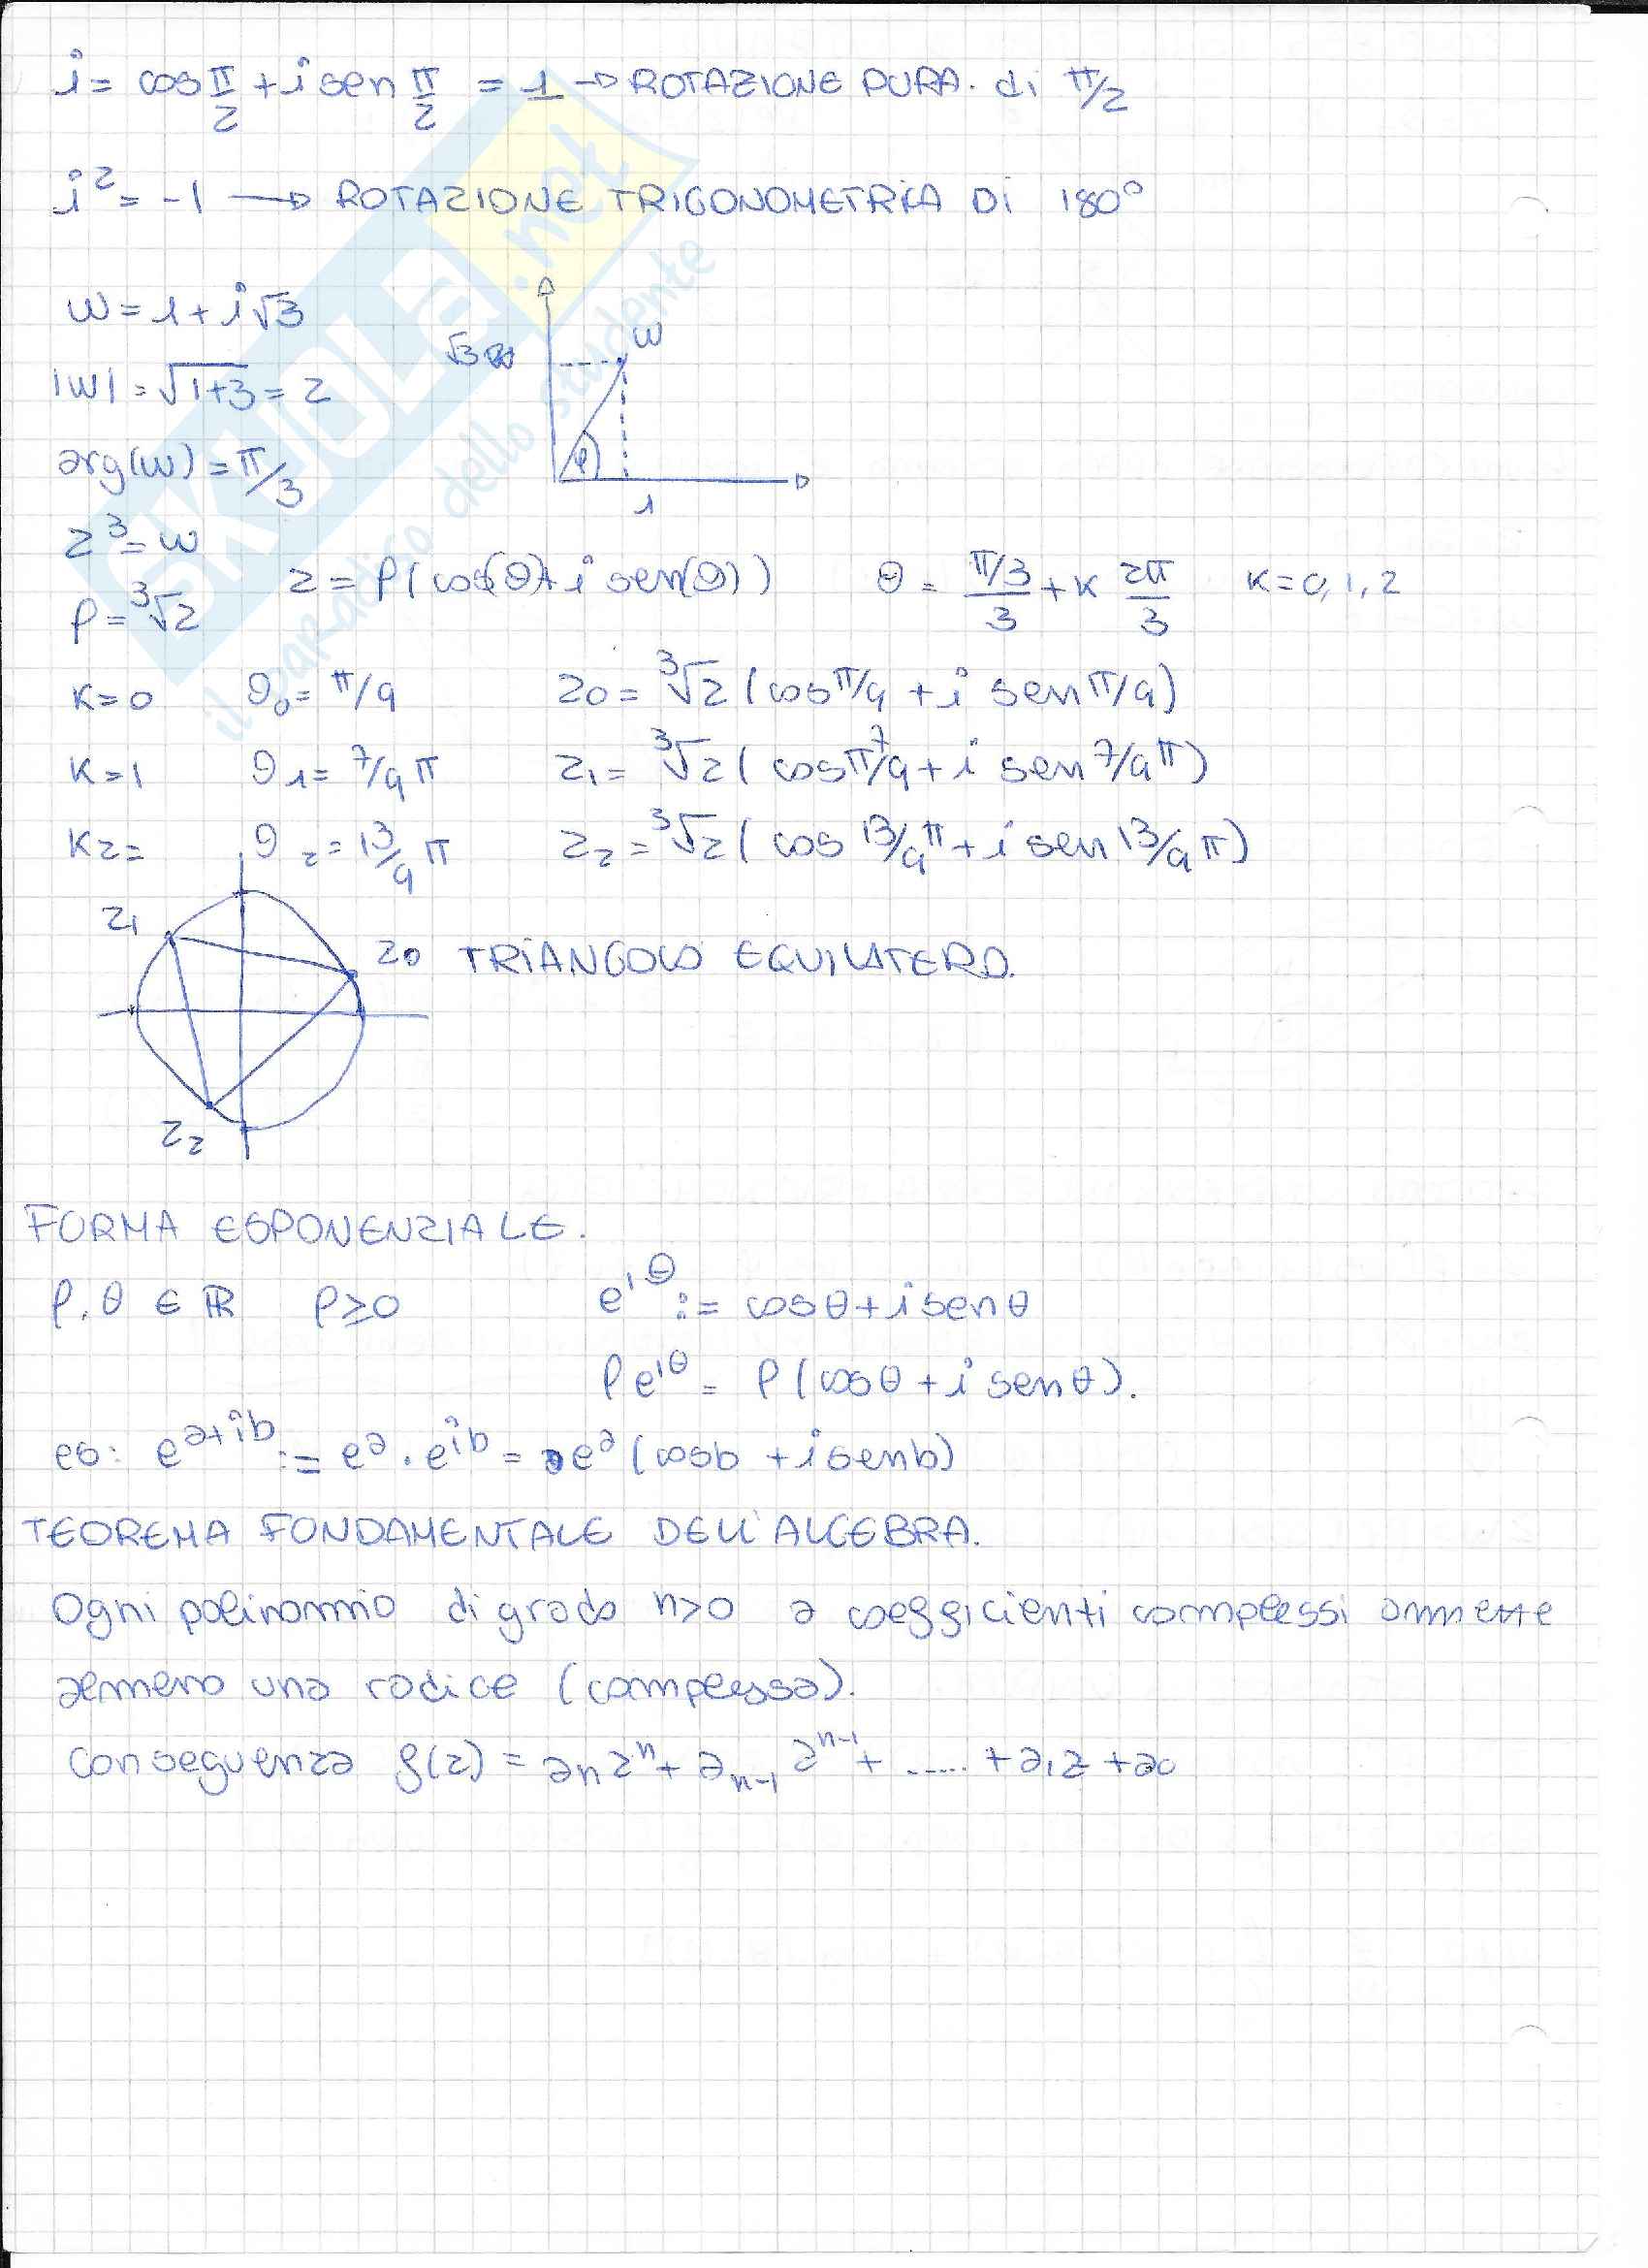 i = cos π/2 + i sen π/2 = 1 → ROTAZIONE PURA. di π/2
i² = -1 → ROTAZIONE TRIGONOMETRIA Di 180°
w = 1 + i√3
|w| = √1+3 = 2
arg(w) = π/3
√3
w
φ
1
z³ = w
ρ = ³√2
z = ρ(cos(θ)+i sen(θ))
θ = (π/3)/3 + k 2π/3
k = 0, 1, 2
k=0 θ₀ = π/9 z0 = ³√2 (cos π/9 + i sen π/9)
k=1 θ1 = 7/9 π z₁ = ³√2 ( cos π 7/9 + i sen 7/9 π)
k2= θ₂ = 13/9 π z₂ = ³√2 ( cos 13/9 π + i sen 13/9 π)
z₁
z0 TRIANGOLO EQUILATERO.
z₂
FORMA ESPONENZIALE.
ρ, θ ∈ ℝ ρ ≥ 0 e^iθ := cosθ + i senθ
ρ e^iθ = ρ (cosθ + i senθ).
es: e^a+ib := e^a · e^ib = e^a (cosb + i senb)
TEOREMA FONDAMENTALE DELL'ALGEBRA.
Ogni polinomio di grado n>0 a coefficienti complessi ammette
almeno una radice (complessa).
Conseguenza f(z) = aₙzⁿ + aₙ₋₁ zⁿ⁻¹ + ..... + a₁z + a0
SKUOLA.net
il paradiso dello studente